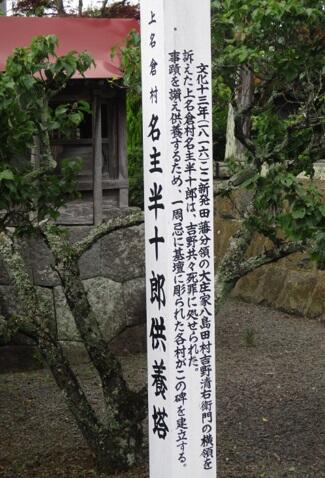 上名倉村 名主半十郎供養塔
文化十三年(一八一六)ここ新発田藩分領の大庄家八島田村吉野清右衛門の横領を
訴えた上名倉村名主半十郎は、吉野共々死罪に処せられた。
事蹟を讃え供養するため、一周忌に墓壇に彫られた各村がこの碑を建立する。